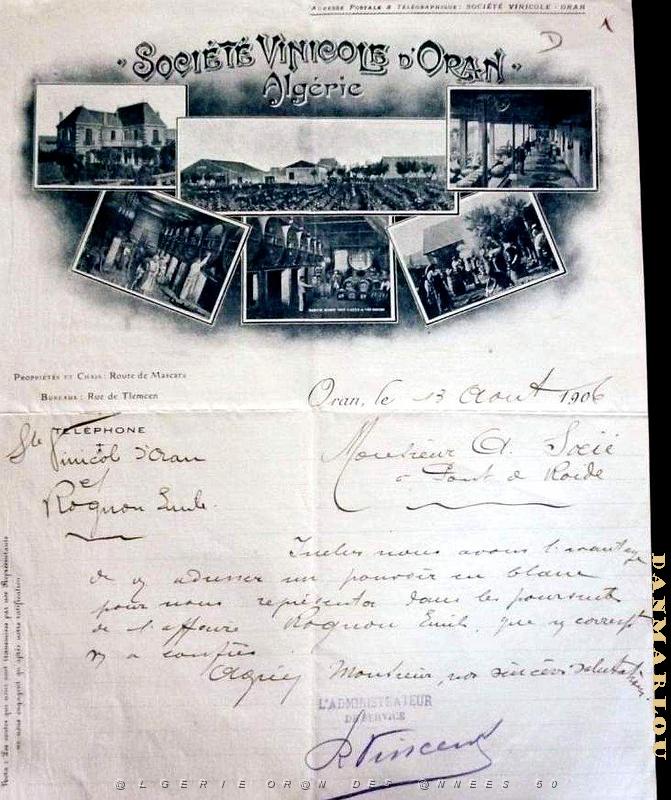 Adresse Postale & Télégraphique: SOCIÉTÉ VINICOLE - ORAN
D
SOCIÉTÉ VINICOLE D'ORAN
Algérie
Propriétés et Chais: Route de Mascara
Bureaux: Rue de Tlemcen
Oran, le 13 Aout 1906
TÉLÉPHONE
Sté Vinicol d'Oran
et
Rognon Emile
Monsieur A.
à Pont de Roide
Inclus nous avons l'avantage
de v adresser un pouvoir en blanc
pour nous représenter dans les poursuites
de l'affaire Rognon Emile, que v corresp
v a confiée
Agréez Monsieur, nos sincères salutations
L'ADMINISTRATEUR
DE SERVICE
Vincent
Nota: Les ventes qui nous sont transmises par nos Représentants
ne nous engagent qu'après notre ratification.
DANMARLOU
@LGERIE OR@N DES @NNEES 50